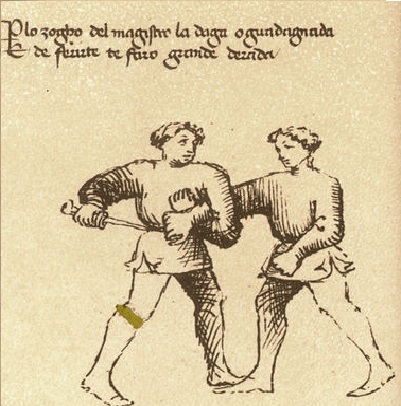 P lo zogho del magistro la daga o guadagnada
E de ferirte te faro grande derada